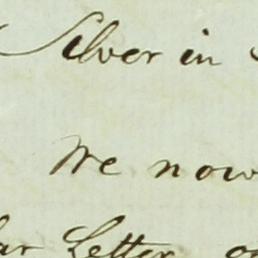 Silver in
We now
Letter